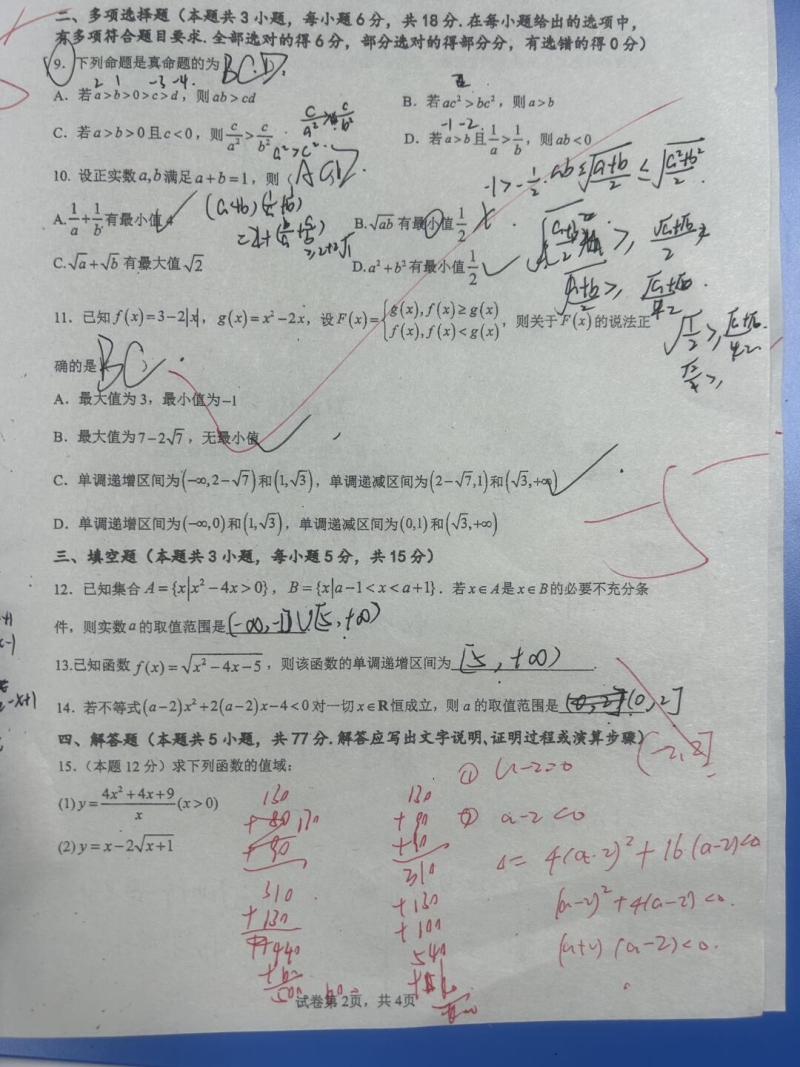 二、多项选择题（本题共3小题，每小题6分，共18分.在每小题给出的选项中，
有多项符合题目要求.全部选对的得6分，部分选对的得部分分，有选错的得0分）
9．下列命题是真命题的为 BCD.
2 1 -3 -4.
A．若a>b>0>c>d，则ab>cd
B．若ac²>bc²，则a>b
C．若a>b>0且c<0，则c/a²>c/b²
-1 -2
D．若a>b且1/a>1/b，则ab<0
10. 设正实数a,b满足a+b=1，则 ACD
A.1/a+1/b有最小值4 ✓
B.√ab有最小值1/2
C.√a+√b有最大值√2
D.a²+b²有最小值1/2 ✓
11．已知f(x)=3-2|x|，g(x)=x²-2x，设F(x)={g(x),f(x)≥g(x)
f(x),f(x)<g(x)，则关于F(x)的说法正
确的是 BC
A．最大值为3，最小值为-1
B．最大值为7-2√7，无最小值 ✓
C．单调递增区间为(-∞,2-√7)和(1,√3)，单调递减区间为(2-√7,1)和(√3,+∞) ✓
D．单调递增区间为(-∞,0)和(1,√3)，单调递减区间为(0,1)和(√3,+∞)
-5
三、填空题（本题共3小题，每小题5分，共15分）
12．已知集合A={x|x²-4x>0}，B={x|a-1<x<a+1}．若x∈A是x∈B的必要不充分条
件，则实数a的取值范围是 (-∞,-1]∪[5,+∞)
13.已知函数f(x)=√x²-4x-5，则该函数的单调递增区间为 [5,+∞) .
14．若不等式(a-2)x²+2(a-2)x-4<0对一切x∈R恒成立，则a的取值范围是 (0,2]
(-2,2]
四、解答题（本题共5小题，共77分.解答应写出文字说明、证明过程或演算步骤）
15．（本题12分）求下列函数的值域：
(1)y=4x²+4x+9/x(x>0)
(2)y=x-2√x+1
① a-2=0
② a-2<0
Δ=4(a-2)²+16(a-2)<0
(a-2)²+4(a-2)<0.
(a+2)(a-2)<0.
130
310
+130
440
130
310
+130
+100
540
试卷第2页，共4页